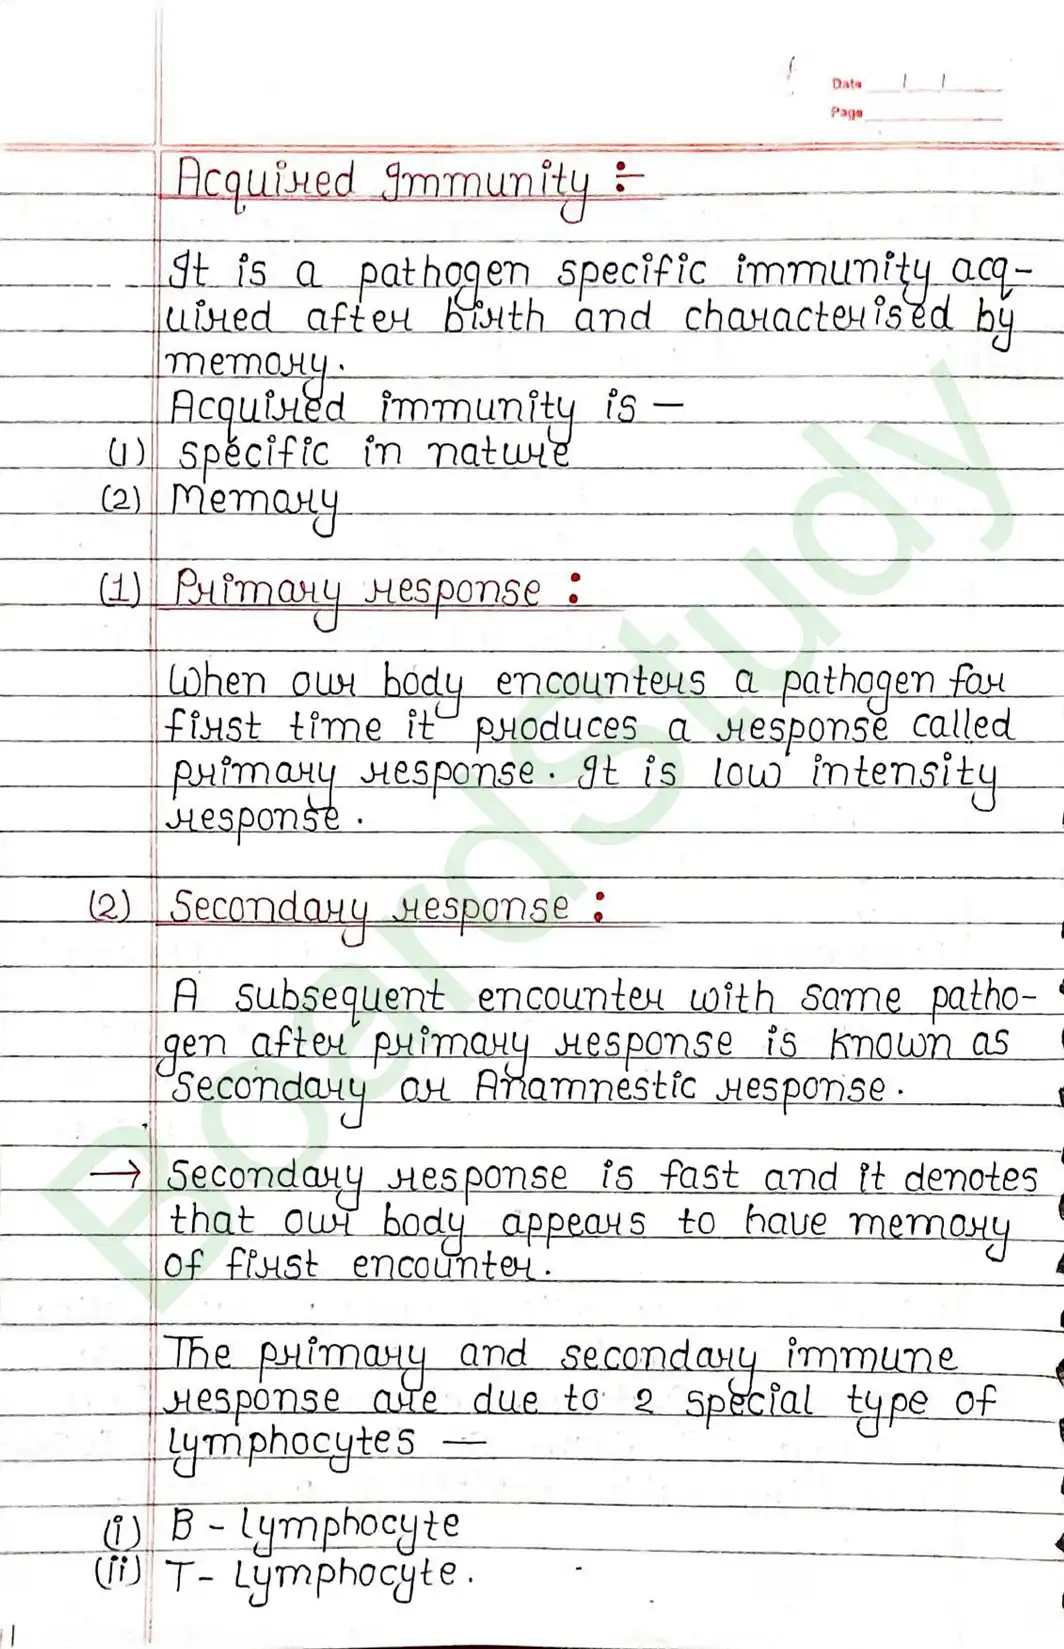 Date
Page
Acquired Immunity :-
It is a pathogen specific immunity acq-
uired after birth and characterised by
memory.
Acquired immunity is —
(1) specific in nature
(2) Memory
(1) Primary response :
When our body encounters a pathogen for
first time it produces a response called
primary response. It is low intensity
response.
(2) Secondary response :
A subsequent encounter with same patho-
gen after primary response is known as
Secondary or Anamnestic response.
→ Secondary response is fast and it denotes
that our body appears to have memory
of first encounter.
The primary and secondary immune
response are due to 2 special type of
lymphocytes —
(i) B - lymphocyte
(ii) T - Lymphocyte.
BoardStudy